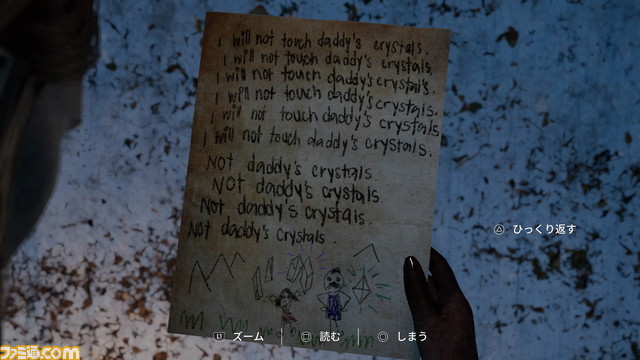 I will not touch daddy's crystals.
I will not touch daddy's crystals.
I will not touch daddy's crystals.
I will not touch daddy's crystals.
I will not touch daddy's crystals
I will not touch daddy's crystals.
Not daddy's crystals.
NOT daddy's crystals.
Not daddy's crystals.
Not daddy's crystals.
△ ひっくり返す
L1 ズーム
□ 読む
○ しまう
ファミ通.com